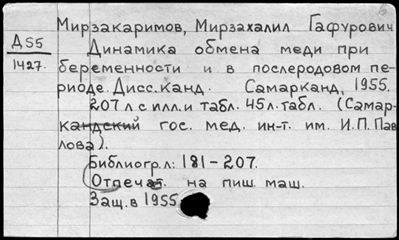 Мирзакаримов, Мирзахалил Гафурович
Д55
1427.
Динамика обмена меди при
беременности и в послеродовом пе-
риоде. Дисс. канд. Самарканд, 1955.
207 л с илл. и табл. 45 л. табл. (Самар-
кандский гос. мед. ин-т. им. И.П. Пав
лова).
Библиогр. л: 181-207.
(Отпечат. на пиш. маш.
Защ. в 1955